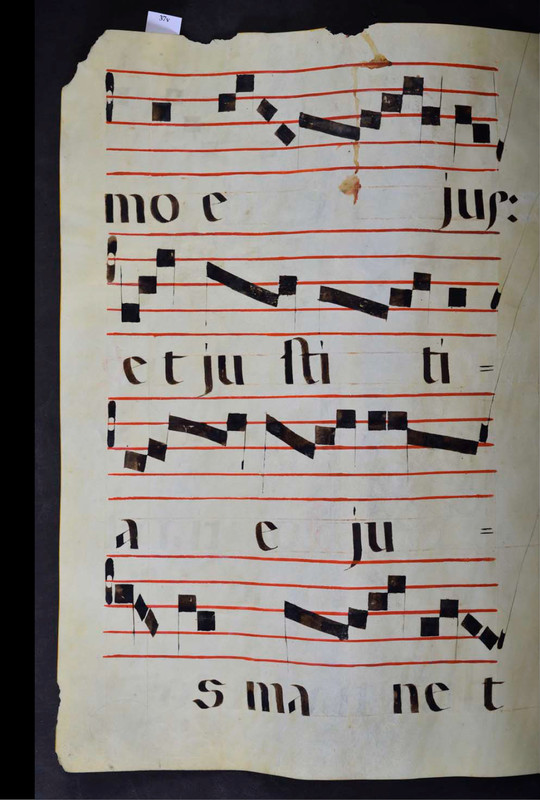 37v
mo e jus:
et ju sti ti =
a e ju =
s ma ne t